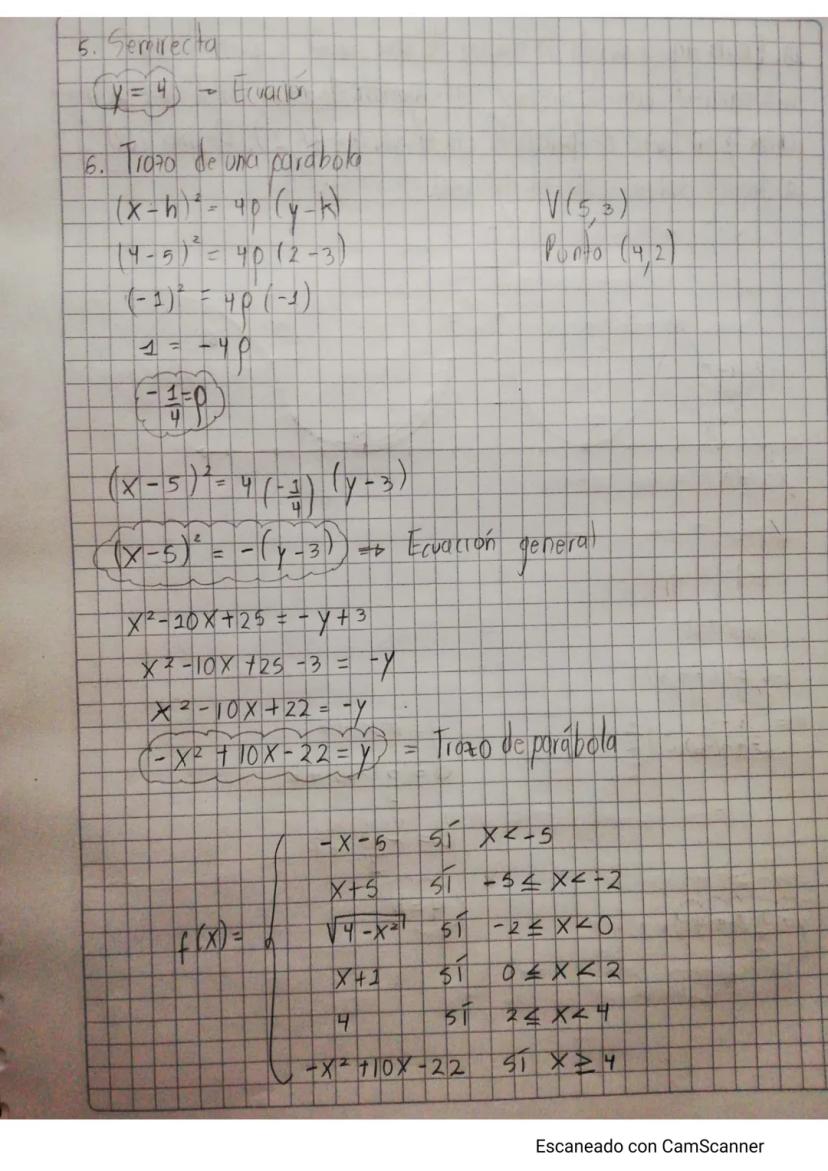 5. Semirecta
y = 4 → Ecuación
6. Trozo de una parábola
(x-h)² = 4p (y-k)
V(5,3)
(4-5)² = 4p (2-3)
Punto (4,2)
(-1)² = 4p (-1)
1 = -4p
-1/4 = p
(x-5)² = 4 (-1/4) (y-3)
(x-5)² = -(y-3) → Ecuación general
x²-10x+25 = -y+3
x²-10x+25-3 = -y
x²-10x+22 = -y
-x²+10x-22 = y = Trozo de parábola
-x-5 sí x<-5
x+5 sí -5≤x<-2
f(x)= √4-x² sí -2≤x<0
x+1 sí 0≤x<2
4 sí 2≤x<4
-x²+10x-22 sí x≥4
Escaneado con CamScanner